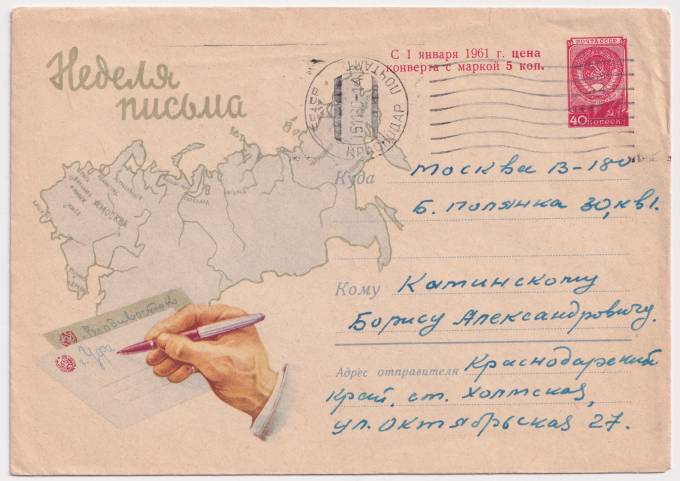 Неделя
письма
С 1 января 1961 г. цена
конверта с маркой 5 коп.
ПОЧТА СССР
40 КОПЕЕК
КРАСНОДАР ПОЧТАМТ
МОСКВА
Куда Москва В-180
Б. Полянка 30, кв1.
Кому Катинскому
Борису Александровичу.
Адрес отправителя Краснодарский
край, ст. Холмская,
ул. Октябрьская 27.
Владивосток
г. Уфа